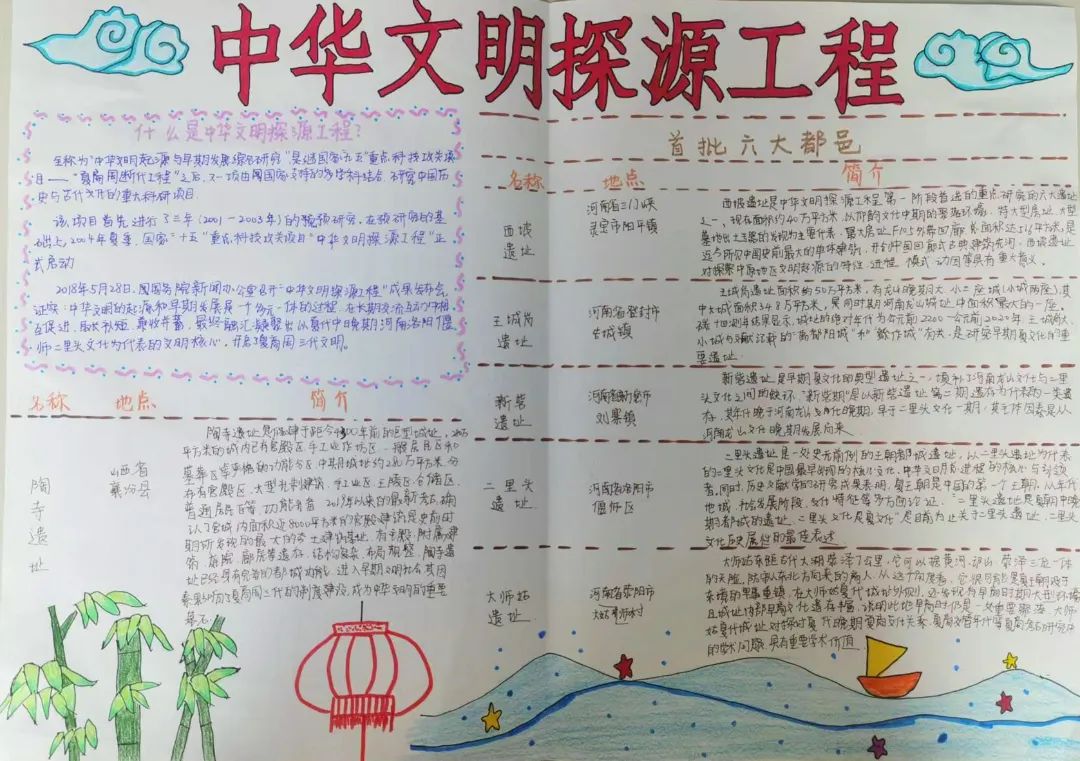 中华文明探源工程
什么是中华文明探源工程?
全称为"中华文明起源与早期发展综合研究"是继国家"九五"重点科技攻关项
目——"夏商周断代工程"之后,又一项由国家支持的多学科结合,研究中国历
史与古代文化的重大科研项目
该项目首先进行了三年(2001-2003年)的预研究,在预研究的基
础上,2004年夏季,国家"十五"重点科技攻关项目"中华文明探源工程"正
式启动
2018年5月28日,国务院新闻办公室召开"中华文明探源工程"成果发布会,
证实:中华文明的起源和早期发展是一个多元一体的过程,在长期交流互动中相
互促进、取长补短、兼收并蓄,最终融汇凝聚出以夏代中晚期河南洛阳偃
师二里头文化为代表的文明核心,开启了夏商周三代文明。
名称 地点 简介
陶寺遗址
山西省
襄汾县
陶寺遗址是
平方米的城内已有宫殿区、手工业作坊区、
墓葬区
存有宫殿区、大型礼制建筑、手工业区、王陵区、仓储区、
普通居民区等功能齐者 2018年以来的最新考古,确
认了宫城内面积近8000平方米的宫殿建筑是史前时
期所发现的最大的夯土建筑基址,有主殿、附属建
筑、庭院、廊房等遗存,结构复杂,布局规整,陶寺遗
址已经具有完备的都城功能,进入早期文明社会,其因
素影响了夏商周三代的制度建设,成为中华文明的重要
首批六大都邑
名称 地点 简介
西坡
遗址
河南省三门峡
灵宝市阳平镇
西坡遗址是中华文明探源工程第一阶段首选的重点研究的六大遗址
之一,现存面积约40万平方米,以仰韶文化中期的聚落环壕、特大型房址、大型
墓地出土玉器的发现为主要代表,最大房址F105外带回廊,总面积达516平方米,是
迄今所知中国史前最大的单体建筑,开创中国回廊式古典建筑先河,西坡遗址
对探索中原地区文明起源的特性、进程、模式、动因等具有重大意义。
王城岗
遗址
河南省登封市
告成镇
王城岗遗址面积约50万平方米,有龙山晚期大、小二座城(小城两座),其
中大城面积34.8万平方米,是同时期河南龙山城址中面积最大的一座。
碳十四测年结果显示,城址的绝对年代为公元前2200-公元前2020年.王城岗大、
小城与文献记载的"禹都阳城"和"鲧作城"有关,是研究早期夏文化的重
要遗址.
新砦
遗址
河南省新密市
刘寨镇
新砦遗址是早期夏文化的典型遗址之一,填补了河南龙山文化与二里
头文化之间的缺环."新砦期"是以新砦遗址第二期遗存为代表的一类遗
存,其年代晚于河南龙山文化晚期,早于二里头文化一期,其主体因素是从
河南龙山文化晚期发展而来.
二里头
遗址
河南省洛阳市
偃师区
二里头遗址是一处史无前例的王朝都城遗址,以二里头遗址为代表
的二里头文化是中国最早出现的核心文化,中华文明总进程的核心与引领
者.同时,历史文献学的研究成果表明,夏王朝是中国的第一个王朝,从年代
地域、社会发展阶段、文化特征等多方面论证,"二里头遗址是夏朝中晚
期者都城的遗址、二里头文化是夏文化"是目前为止关于二里头遗址、二里头
文化历史属性的最佳表述
大师姑
遗址
河南省荥阳市
大师姑东距古代大湖荥泽7公里,它可以据黄河、邙山、荥泽三位一体
的天险,防御东北方向来的商人,从这个角度看,它很可能是夏王朝设于
东境的军事重镇,在大师姑夏代城址外侧,还发现有早商时期大型环壕,
且城址内部早商文化遗存丰富,说明此地早商时仍是一处重要聚落.大师
姑夏代城址对探讨夏代晚期夏商文化关系、夏商文暦年代等夏商考古研究中
的学术问题,具有重要学术价值